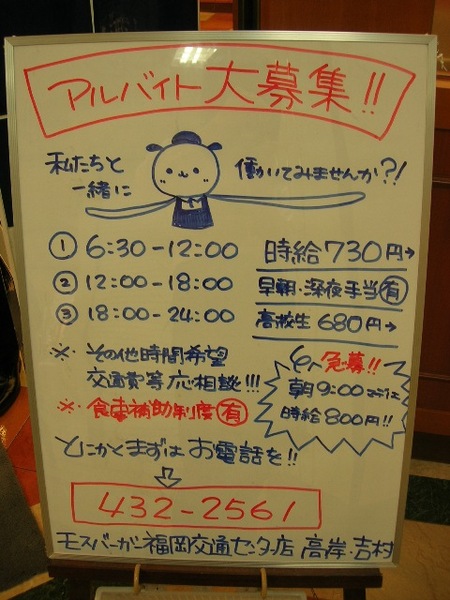 アルバイト大募集!!
私たちと
一緒に
働いてみませんか?!
① 6:30-12:00
② 12:00-18:00
③ 18:00-24:00
時給730円→
早朝・深夜手当有
高校生 680円→
※ その他時間希望
交通費等応相談!!!
※ 食事補助制度有
急募!!
朝9:00までは
時給800円!!
とにかくまずはお電話を!!
432-2561
モスバーガー福岡交通センター店 高岸・吉村